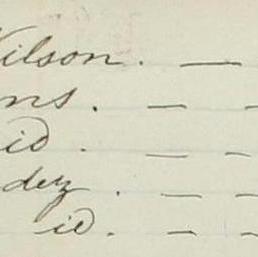 Wilson. — 
ns. — —
id. — —
dez. — —
id. — —